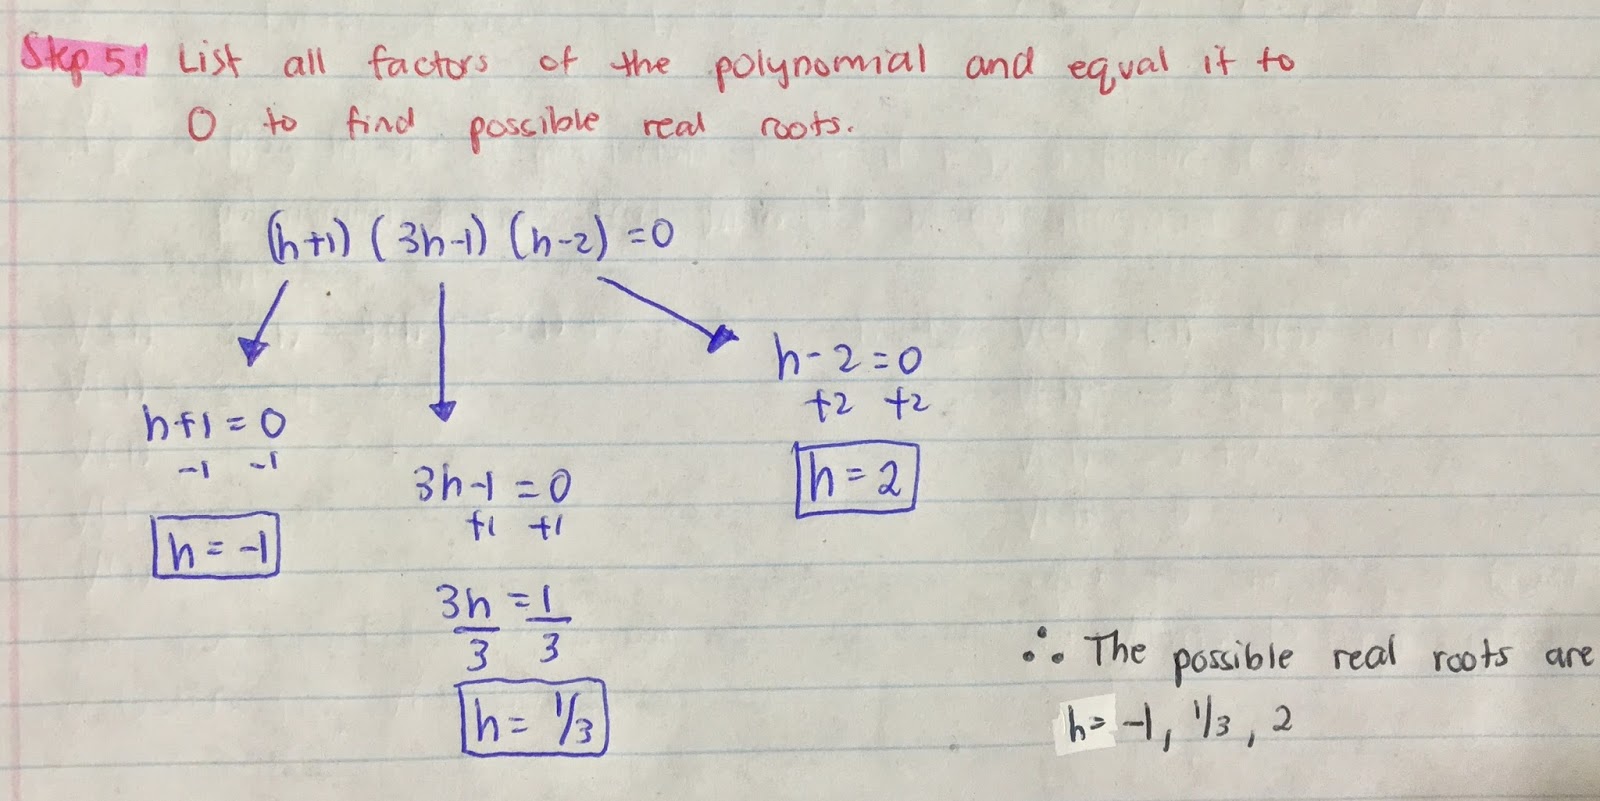 Step 5! List all factors of the polynomial and equal it to
0 to find possible real roots.
(h+1) (3h-1) (h-2) = 0
h+1 = 0
-1 -1
h = -1
3h-1 = 0
+1 +1
3h = 1
3 3
h = 1/3
h - 2 = 0
+2 +2
h = 2
∴ The possible real roots are
h = -1, 1/3, 2